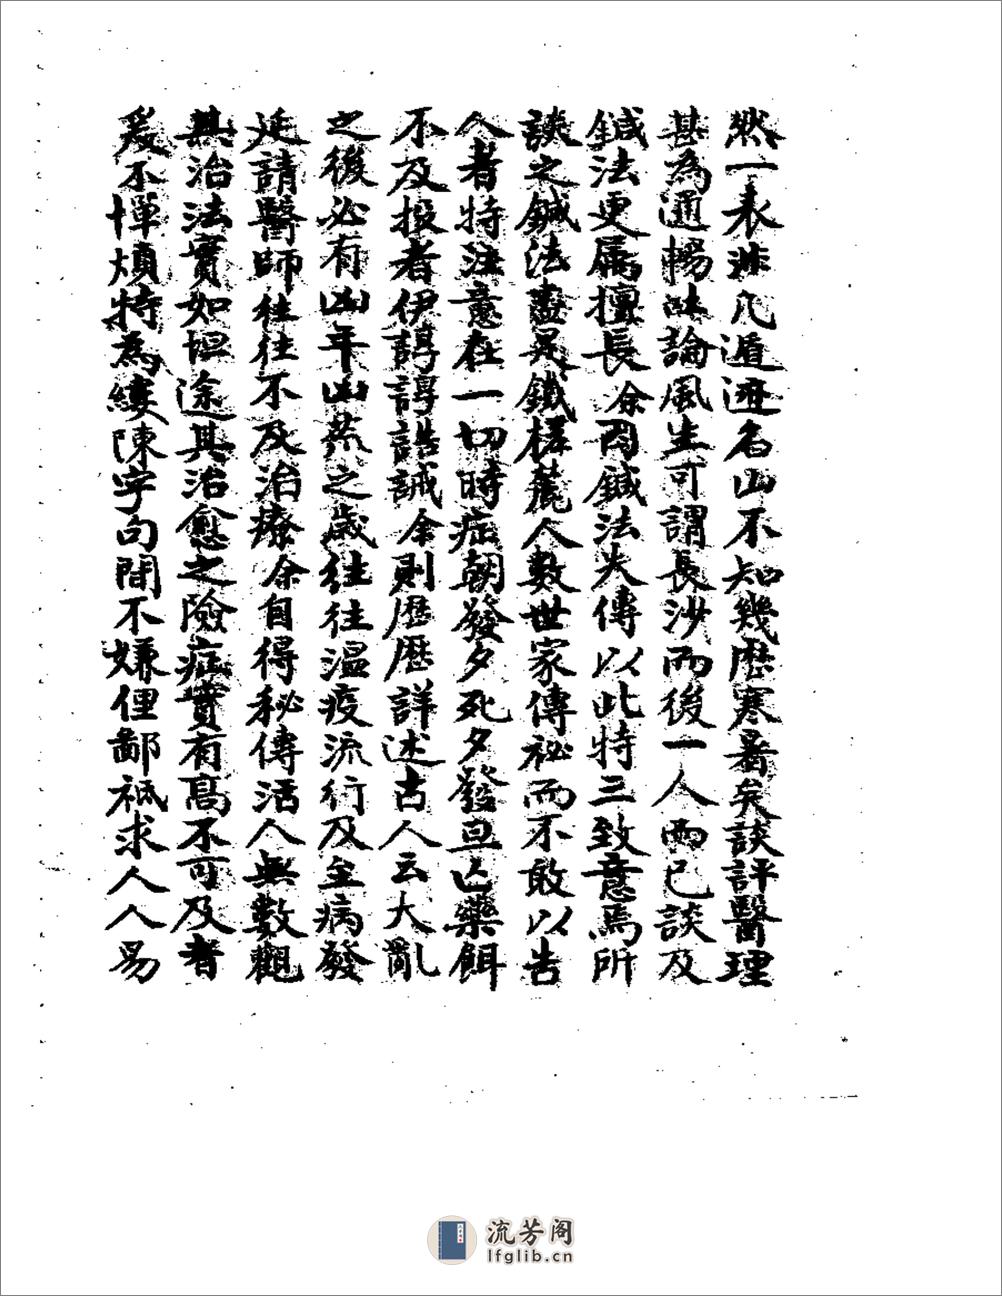 然一表非凡遁迹名山不知幾歷寒暑矣談評醫理
甚為通暢咄論風生可謂長沙而後一人而已談及
鍼法更属擅長余因鍼法失傳以此特三致意焉所
談之鍼法盡是鐵槎麓人數世家傳祕而不敢以告
人者特注意在一切時症朝發夕死夕發旦亡藥餌
不及投者伊諄諄誥誡余則歷歷詳述古人云大亂
之後必有凶年凶荒之歲往往溫疫流行及至病發
延請醫師往往不及治療余自得秘傳活人無數觀
其治法實如坦途其治愈之險症實有高不可及者
爰不憚煩特為縷陳字句間不嫌俚鄙祇求人人易
流芳阁
lfglib.cn